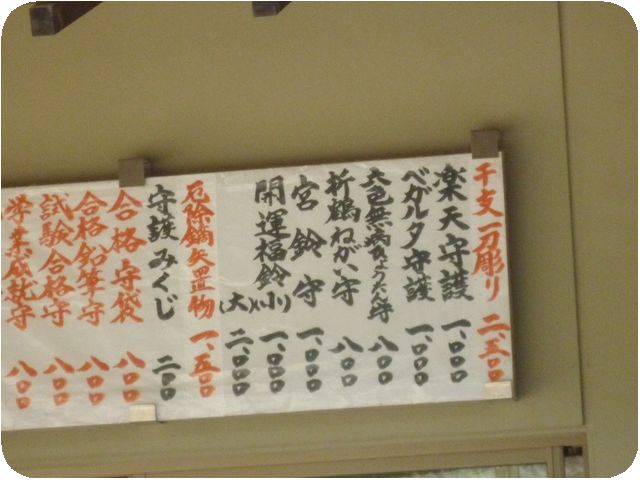 干支一刀彫り 二、五〇〇
楽天守護 一、〇〇〇
ベガルタ守護 一、〇〇〇
六邑無病ひょうたん守 八〇〇
折鶴ねがい守 八〇〇
宮鈴守 一、〇〇〇
開運福鈴(小) 一、〇〇〇
(大) 二、〇〇〇
厄除鏑矢置物 一、五〇〇
守護みくじ 二〇〇
合格守袋 八〇〇
合格鉛筆守 八〇〇
試験合格守 八〇〇
学業成就守 八〇〇